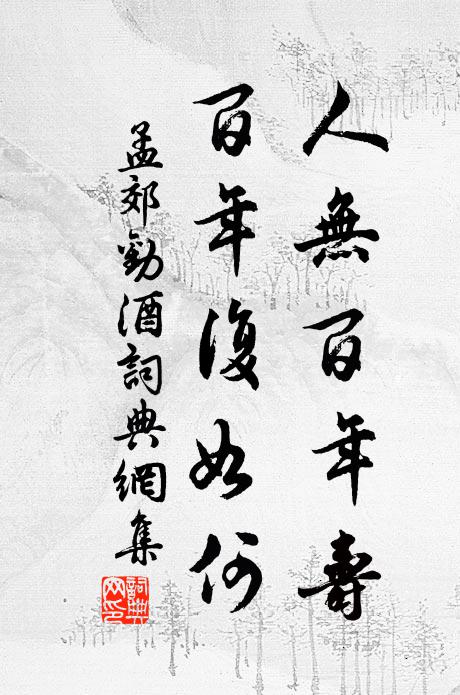 人無百年壽
百年復如何
孟郊勸酒詞典網集
詞典網印